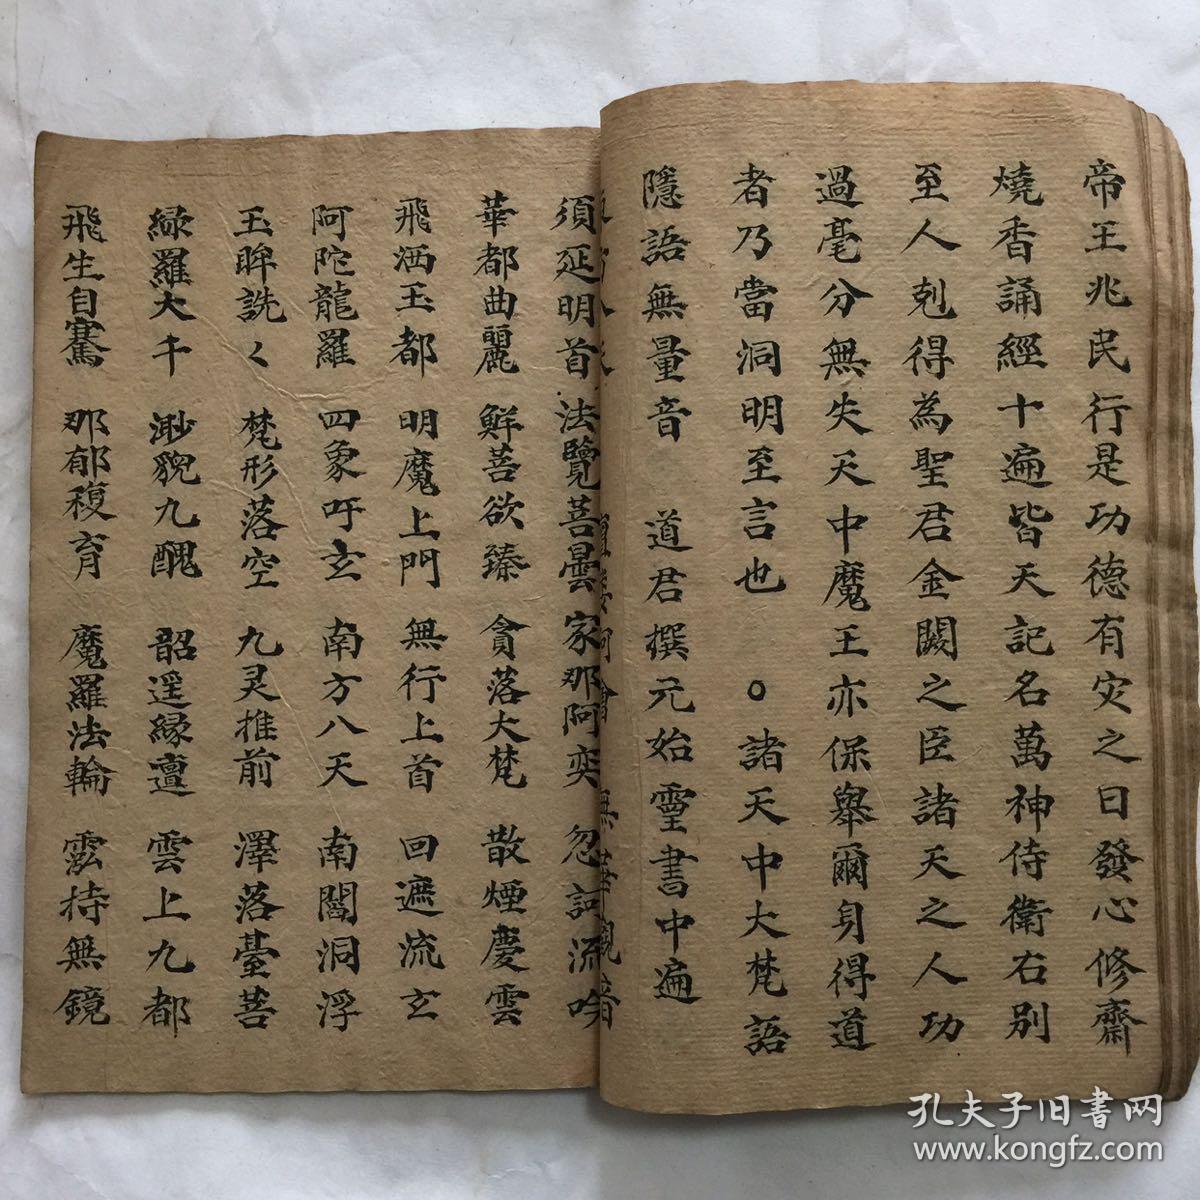 帝王兆民行是功德有灾之日發心修齋
燒香誦經十遍皆天記名萬神侍衛右別
至人剋得為聖君金闕之臣諸天之人功
過毫分無失天中魔王亦保舉爾身得道
者乃當洞明至言也 ○諸天中大梵語
隱語無量音 道君撰元始靈書中遍
無
須延明首 法覽菩曇 家那阿奕 忽訶流吟
華都曲麗 鮮菩欲臻 貪落大梵 散煙慶雲
飛洒玉都 明魔上門 無行上首 回遮流玄
阿陀龍羅 四象吁玄 南方八天 南閻洞浮
玉眸詵く 梵形落空 九灵推前 澤落臺菩
緑羅大千 渺貌九醜 韶遥緣亶 雲上九都
飛生自騫 那郁馥育 魔羅法輪 霐持無鏡
孔夫子旧书网
www.kongfz.com